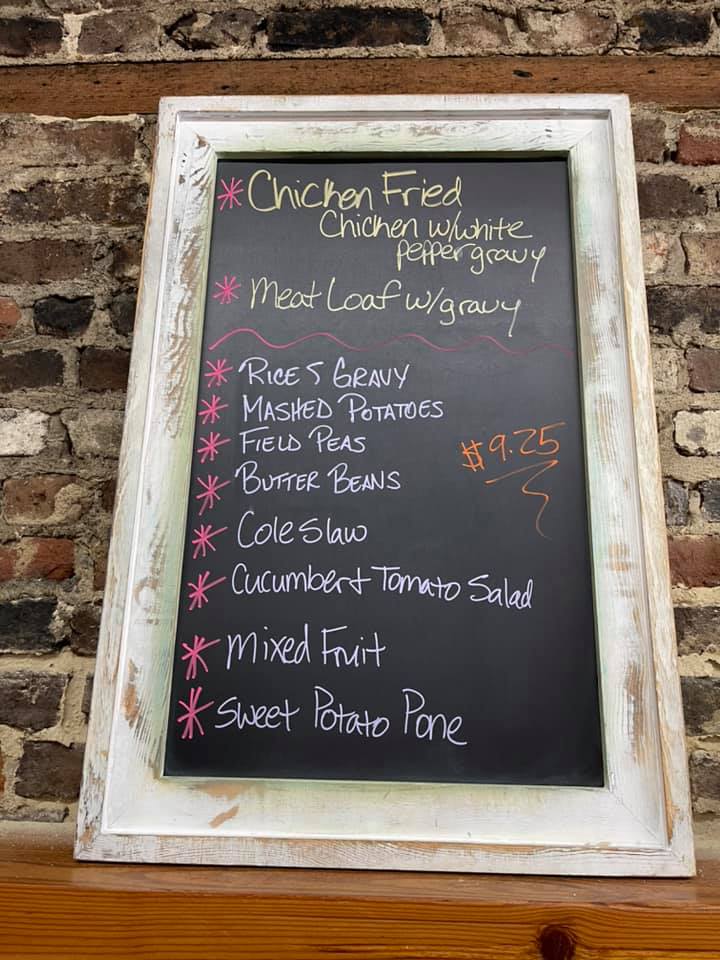 * Chicken Fried
Chicken w/white
pepper gravy
* Meat Loaf w/gravy
* RICE & GRAVY
* MASHED POTATOES
* FIELD PEAS
$9.25
* BUTTER BEANS
* Cole Slaw
* Cucumber & Tomato Salad
* Mixed Fruit
* Sweet Potato Pone